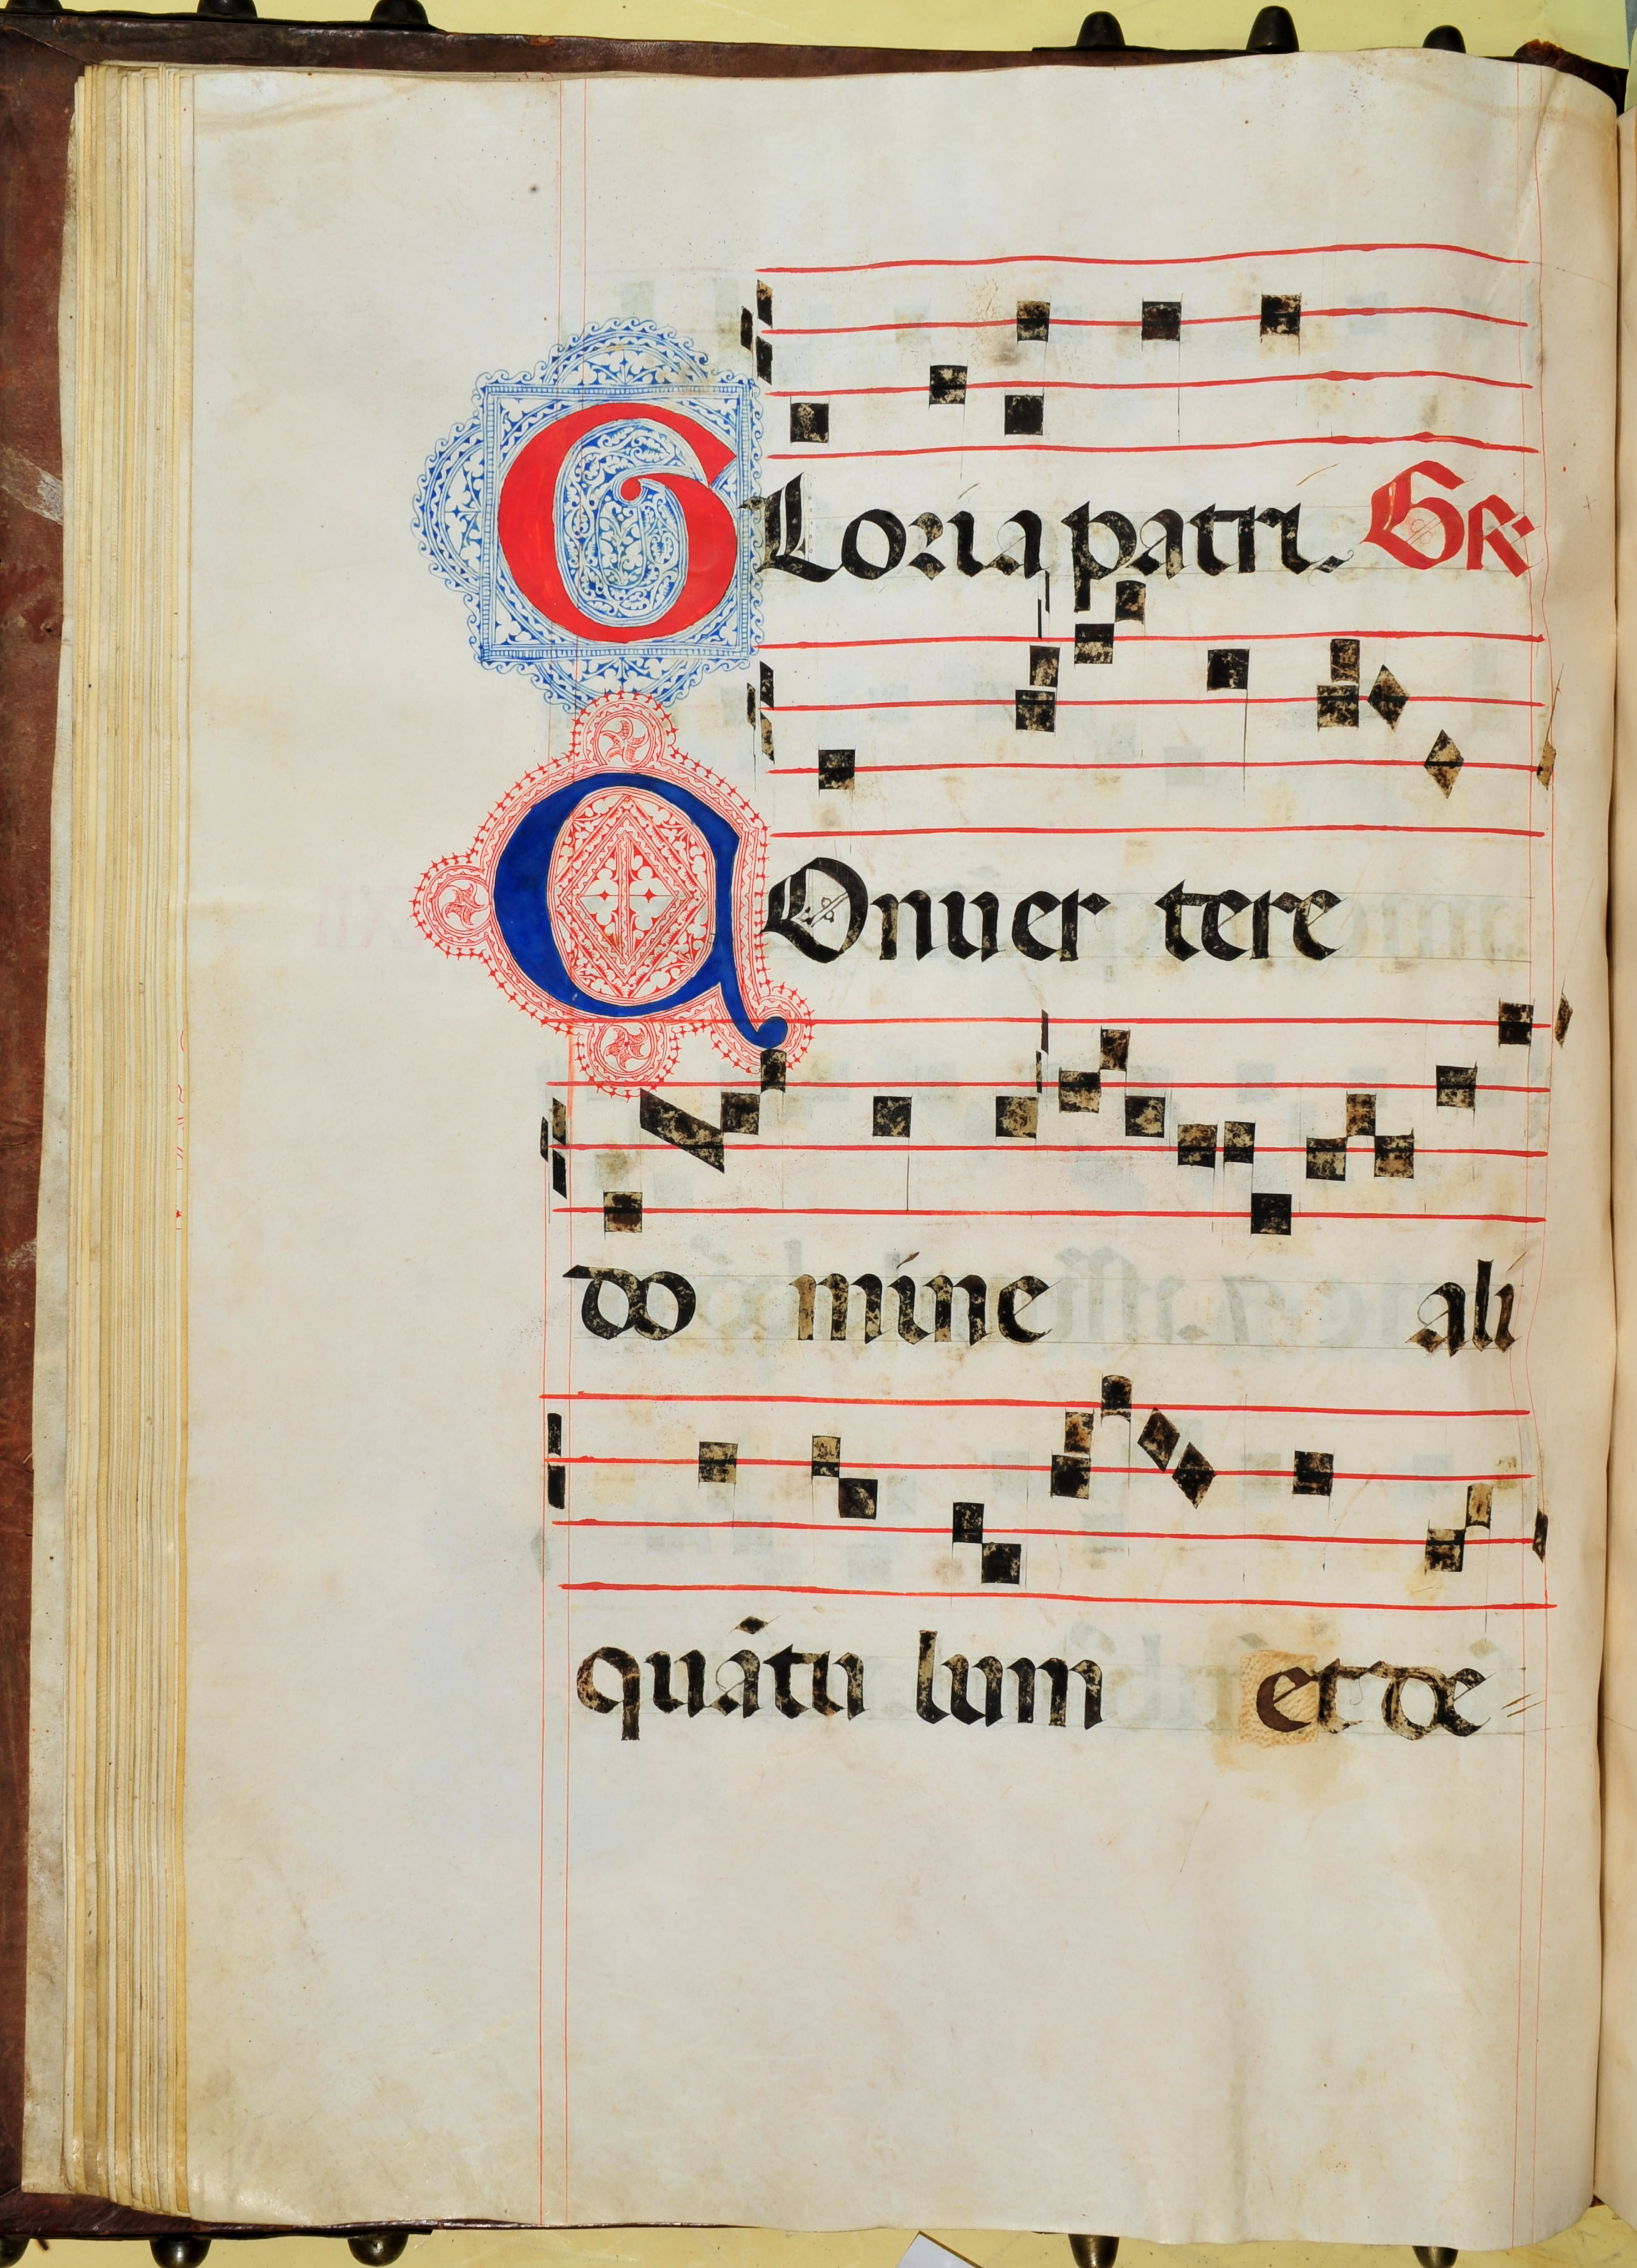 GLoria patri. GR
COnuer tere
do mine ali
quātu lum et de